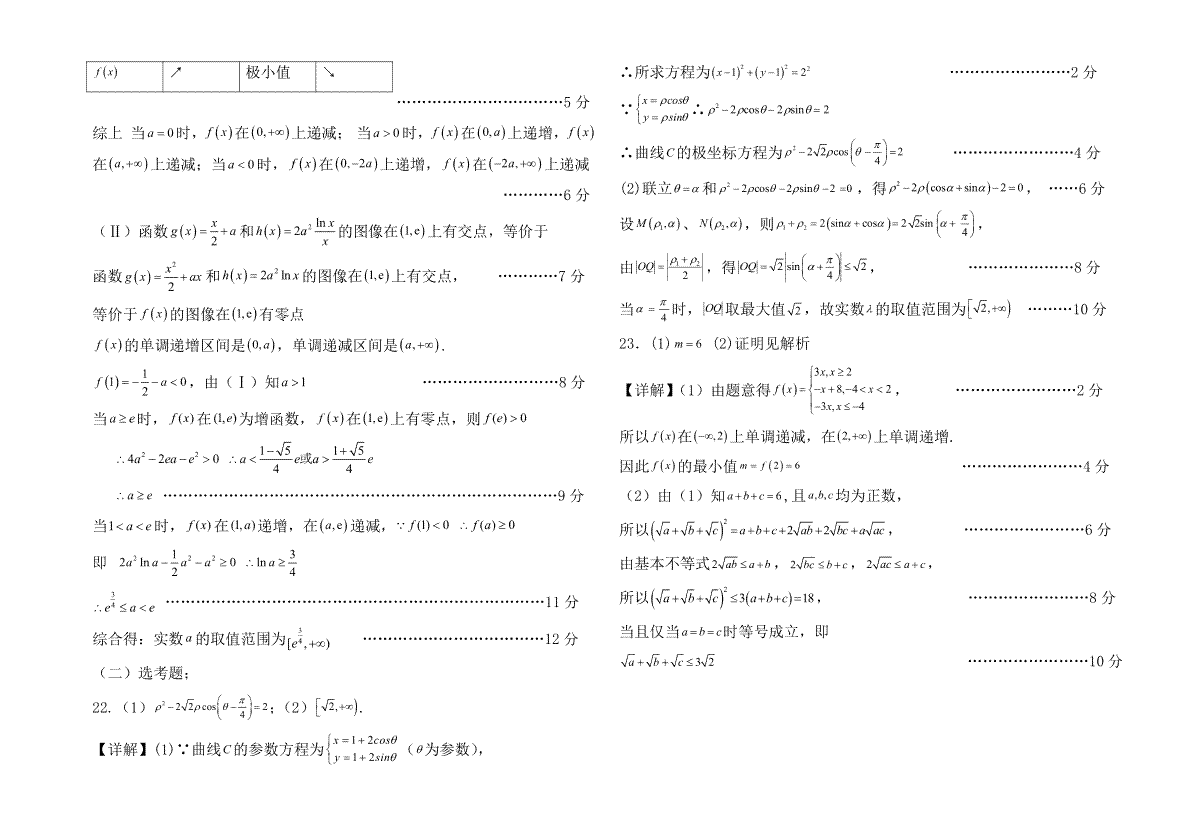 f(x) ↗ 极小值 ↘
……………………………5分
综上 当a=0时，f(x)在(0,+∞)上递减； 当a>0时，f(x)在(0,a)上递增，f(x)
在(a,+∞)上递减；当a<0时，f(x)在(0,−2a)上递增，f(x)在(−2a,+∞)上递减
…………6分
(Ⅱ)函数g(x)=x/2+a和h(x)=2a²·ln x/x的图像在(1,e)上有交点，等价于
函数g(x)=x²/2+ax和h(x)=2a² ln x的图像在(1,e)上有交点， …………7分
等价于f(x)的图像在(1,e)有零点
f(x)的单调递增区间是(0,a)，单调递减区间是(a,+∞).
f(1)=−1/2−a<0，由(Ⅰ)知a>1 ………………………8分
当a≥e时，f(x)在(1,e)为增函数，f(x)在(1,e)上有零点，则f(e)>0
∴4a²−2ea−e²>0 ∴a<(1−√5)/4 e或a>(1+√5)/4 e
∴a≥e ……………………………………………………………………9分
当1<a<e时，f(x)在(1,a)递增，在(a,e)递减，∵f(1)<0 ∴f(a)≥0
即 2a² ln a−1/2 a²−a²≥0 ∴ln a≥3/4
∴e^(3/4)≤a<e …………………………………………………………………11分
综合得：实数a的取值范围为[e^(3/4),+∞) ………………………………12分
(二）选考题；
22.（1）ρ²−2√2ρcos(θ−π/4)=2；(2)[√2,+∞).
【详解】(1)∵曲线C的参数方程为{x=1+2cosθ y=1+2sinθ（θ为参数)，
∴所求方程为(x−1)²+(y−1)²=2² ……………………2分
∵{x=ρcosθ y=ρsinθ∴ρ²−2ρcosθ−2ρsinθ=2
∴曲线C的极坐标方程为ρ²−2√2ρcos(θ−π/4)=2 ……………………4分
(2)联立θ=α和ρ²−2ρcosθ−2ρsinθ−2=0，得ρ²−2ρ(cosα+sinα)−2=0， ……6分
设M(ρ₁,α)、N(ρ₂,α)，则ρ₁+ρ₂=2(sinα+cosα)=2√2sin(α+π/4)，
由|OQ|=|(ρ₁+ρ₂)/2|，得|OQ|=√2|sin(α+π/4)|≤√2， …………………8分
当α=π/4时，|OQ|取最大值√2，故实数λ的取值范围为[√2,+∞) ………10分
23．(1) m=6 (2)证明见解析
【详解】（1）由题意得f(x)={3x,x≥2 −x+8,−4<x<2 −3x,x≤−4， ……………………2分
所以f(x)在(−∞,2)上单调递减，在(2,+∞)上单调递增.
因此f(x)的最小值m=f(2)=6 ……………………4分
（2）由（1）知a+b+c=6,且a,b,c均为正数，
所以(√a+√b+√c)²=a+b+c+2√ab+2√bc+a√ac， ……………………6分
由基本不等式2√ab≤a+b，2√bc≤b+c，2√ac≤a+c，
所以(√a+√b+√c)²≤3(a+b+c)=18， ……………………8分
当且仅当a=b=c时等号成立，即
√a+√b+√c≤3√2 ……………………10分